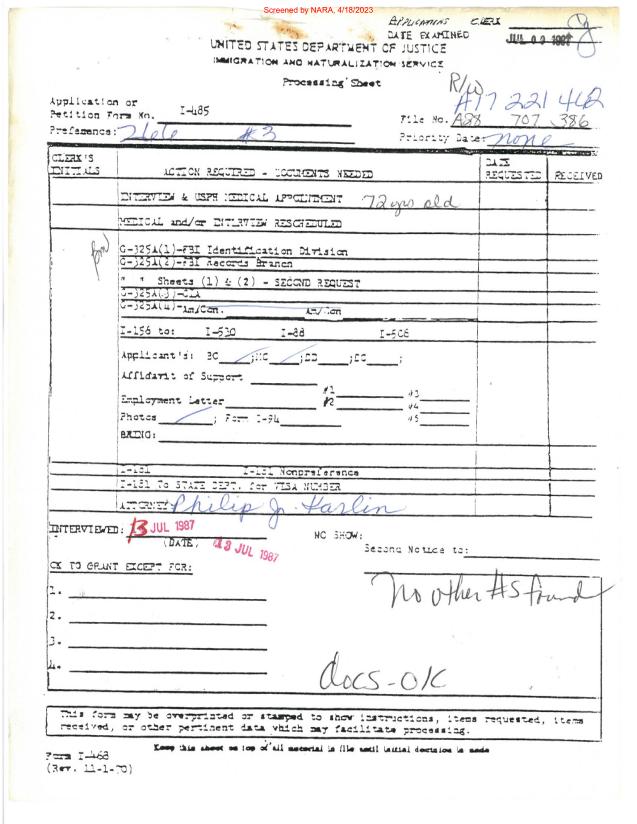 Screened by NARA, 4/18/2023
APPLICATIONS CLERK
DATE EXAMINED JUL 09 1987
UNITED STATES DEPARTMENT OF JUSTICE
IMMIGRATION AND NATURALIZATION SERVICE
Processing Sheet
R/W
A17 221 462
Application or
Petition Form No. I-485
File No. A28 707 386
Preference: #3
Priority Date: none
CLERK'S INITIALS
ACTION REQUIRED - DOCUMENTS NEEDED
DATE REQUESTED
RECEIVED
INTERVIEW & USPH MEDICAL APPOINTMENT 72 yrs old
MEDICAL and/or INTERVIEW RESCHEDULED
G-325A(1)-FBI Identification Division
G-325A(2)-FBI Records Branch
" " Sheets (1) & (2) - SECOND REQUEST
G-325A(3)-CIA
G-325A(4)-Am/Con. Am/Con
I-156 to: I-530 I-88 I-506
Applicant's: BC ;MC ;DD ;DC ;
Affidavit of Support
Employment Letter #1 #2 #3 #4 #5
Photos ; Form I-94
BRING:
I-181 I-181 Nonpreference
I-181 To STATE DEPT. for VISA NUMBER
ATTORNEY Philip J. Karlin
INTERVIEWED: 13 JUL 1987
(DATE) 13 JUL 1987
NO SHOW:
Second Notice to:
OK TO GRANT EXCEPT FOR:
No other #s found
1.
2.
3.
4.
docs-OK
This form may be overprinted or stamped to show instructions, items requested, items
received, or other pertinent data which may facilitate processing.
Keep this sheet on top of all material in file until initial decision is made
Form I-468
(Rev. 11-1-70)